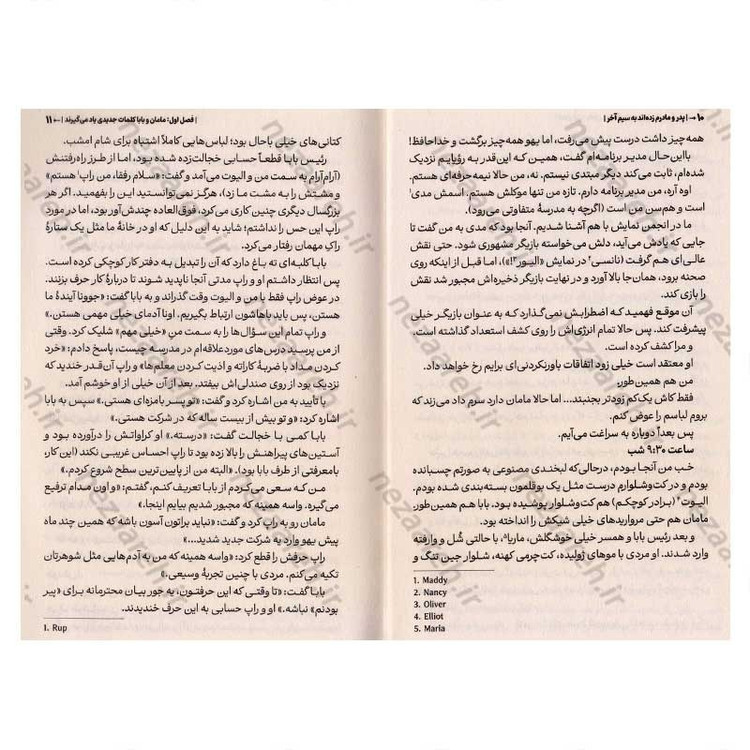 ۱۰ | پدر و مادرم زده‌اند به سیم آخر |
همه‌چیز داشت درست پیش می‌رفت، اما یهو همه‌چیز برگشت و خداحافظ!
بااین‌حال مدیر برنامه‌ام گفت، همین که این‌قدر به رؤیایم نزدیک
شده‌ام، ثابت می‌کند دیگر مبتدی نیستم. نه، من حالا نیمه‌حرفه‌ای هستم.
اوه آره، من مدیر برنامه دارم. تازه من تنها موکلش هستم. اسمش مدی۱
است و هم‌سن من است (اگرچه به مدرسهٔ متفاوتی می‌رود).
ما در انجمن نمایش با هم آشنا شدیم. آنجا بود که مدی به من گفت تا
جایی که یادش می‌آید، دلش می‌خواسته بازیگر مشهوری شود. حتی نقش
عالی‌ای هم گرفت (نانسی۲ در نمایش «الیور۳!»)، اما قبل از اینکه روی
صحنه برود، همان‌جا بالا آورد و در نهایت بازیگر ذخیره‌اش مجبور شد نقش
را بازی کند.
آن موقع فهمید که اضطرابش نمی‌گذارد که به عنوان بازیگر خیلی
پیشرفت کند. پس حالا تمام انرژی‌اش را روی کشف استعداد گذاشته است.
و مرا کشف کرده است.
او معتقد است خیلی زود اتفاقات باورنکردنی‌ای برایم رخ خواهد داد.
من هم همین‌طور.
فقط کاش یک‌کم زودتر بجنبند... اما حالا مامان دارد سرم داد می‌زند که
بروم لباسم را عوض کنم.
پس بعداً دوباره به سراغت می‌آیم.
ساعت ۹:۳۰ شب
خب من آنجا بودم، درحالی‌که لبخندی مصنوعی به صورتم چسبانده
بودم و در کت‌وشلوارم درست مثل یک بوقلمون بسته‌بندی شده بودم.
الیوت۴ (برادر کوچکم) هم کت‌وشلوار پوشیده بود. بابا هم همین‌طور.
مامان هم حتی مرواریدهای خیلی شیکش را انداخته بود.
و بعد رئیس بابا و همسر خیلی خوشگلش، ماریا۵، با حالتی شُل و وارفته
وارد شدند. او مردی با موهای ژولیده، کت‌چرمی کهنه، شلوار جین تنگ و
1. Maddy
2. Nancy
3. Oliver
4. Elliot
5. Maria
| فصل اول: مامان و بابا کلمات جدیدی یاد می‌گیرند | ۱۱
کتانی‌های خیلی باحال بود؛ لباس‌هایی کاملاً اشتباه برای شام امشب.
رئیس بابا قطعاً حسابی خجالت‌زده شده بود، اما از طرز راه‌رفتنش
(آرام‌آرام به سمت من و الیوت می‌آمد و گفت: «سلام رفقا، من راپ۱ هستم»
و مشتش را به مشت ما زد)، هرگز نمی‌توانستید این را بفهمید. اگر هر
بزرگسال دیگری چنین کاری می‌کرد، فوق‌العاده چندش‌آور بود، اما در مورد
راپ این حس را نداشتم؛ شاید به این دلیل که او در خانهٔ ما مثل یک ستارهٔ
راکِ مهمان رفتار می‌کرد.
بابا کلبه‌ای ته باغ دارد که آن را تبدیل به دفتر کار کوچکی کرده است.
پس انتظار داشتم او و راپ مدتی آنجا ناپدید شوند تا دربارهٔ کار حرف بزنند.
در عوض راپ فقط با من و الیوت وقت گذراند و به بابا گفت: «جوونا آیندهٔ ما
هستن، پس باید باهاشون ارتباط بگیریم. اونا آدمای خیلی مهمی هستن.»
و راپ تمام این سؤال‌ها را به سمت منِ «خیلی مهم» شلیک کرد. وقتی
از من پرسید درس‌های موردعلاقه‌ام در مدرسه چیست، پاسخ دادم: «خرد
کردن مداد با ضربهٔ کاراته و اذیت کردن معلم‌ها» و راپ آن‌قدر خندید که
نزدیک بود از روی صندلی‌اش بیفتد. بعد از آن خیلی از او خوشم آمد.
با تأیید به من اشاره کرد و گفت: «تو پسر بامزه‌ای هستی.» سپس به بابا
اشاره کرد: «و تو بیش از بیست ساله که در شرکت هستی.»
بابا کمی با خجالت گفت: «درسته.» او کراواتش را درآورده بود و
آستین‌های پیراهنش را بالا زده بود تا راپ احساس غریبی نکند (این کار،
بامعرفتی از طرف بابا بود). «البته من از پایین‌ترین سطح شروع کردم.»
من که سعی می‌کردم از بابا تعریف کنم، گفتم: «و اون مدام ترفیع
می‌گیره. واسه همینه که مجبور شدیم بیایم اینجا.»
مامان رو به راپ کرد و گفت: «نباید براتون آسون باشه که همین چند ماه
پیش یهو وارد یه شرکت جدید شدید...»
راپ حرفش را قطع کرد: «واسه همینه که من به آدم‌هایی مثل شوهرتان
تکیه می‌کنم. مردی با چنین تجربهٔ وسیعی.»
بابا گفت: «تا وقتی که این حرفتون، یه جور بیان محترمانه برای «پیر
بودنم» نباشه.» او و راپ حسابی به این حرف خندیدند.
1. Rup
nezaareh.ir